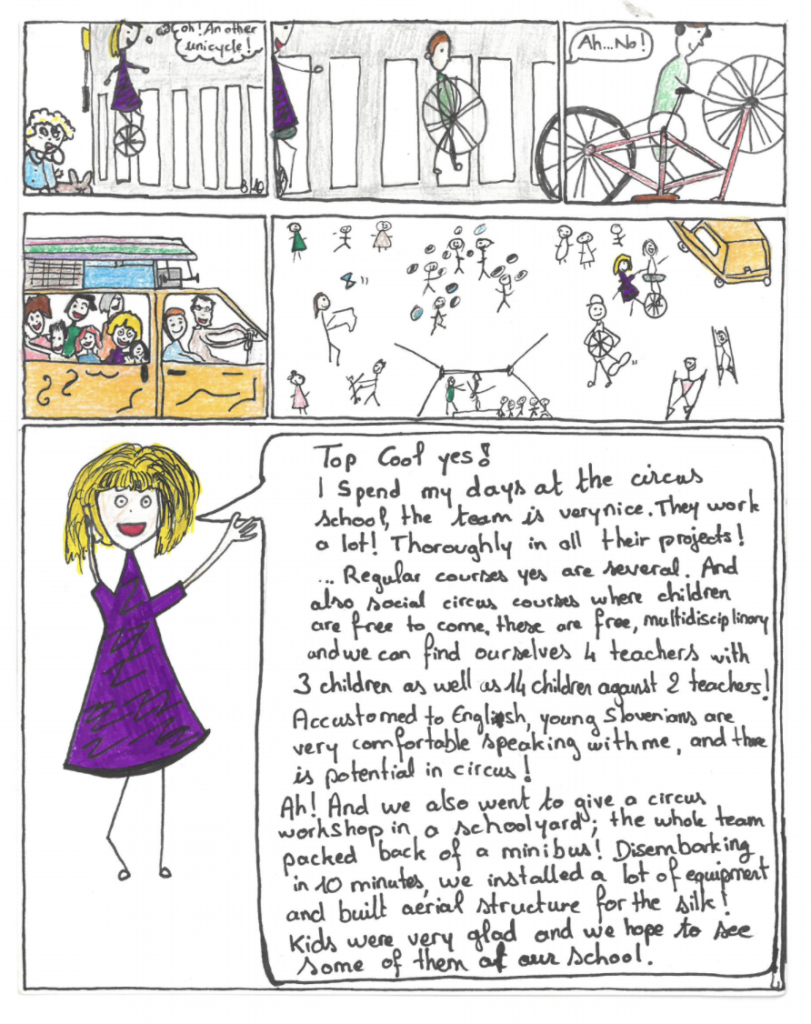 oh! An other
unicycle!
Ah...No!
Top Cool yes!
I Spend my days at the circus
school, the team is very nice. They work
a lot! Thoroughly in all their projects!
... Regular courses yes are several. And
also social circus courses where children
are free to come. these are free, multidisciplinary
and we can find ourselves 4 teachers with
3 children as well as 14 children against 2 teachers!
Accustomed to English, young Slovenians are
very comfortable speaking with me, and there
is potential in circus!
Ah! And we also went to give a circus
workshop in a schoolyard; the whole team
packed back of a minibus! Disembarking
in 10 minutes, we installed a lot of equipment
and built aerial structure for the silk!
Kids were very glad and we hope to see
some of them at our school.